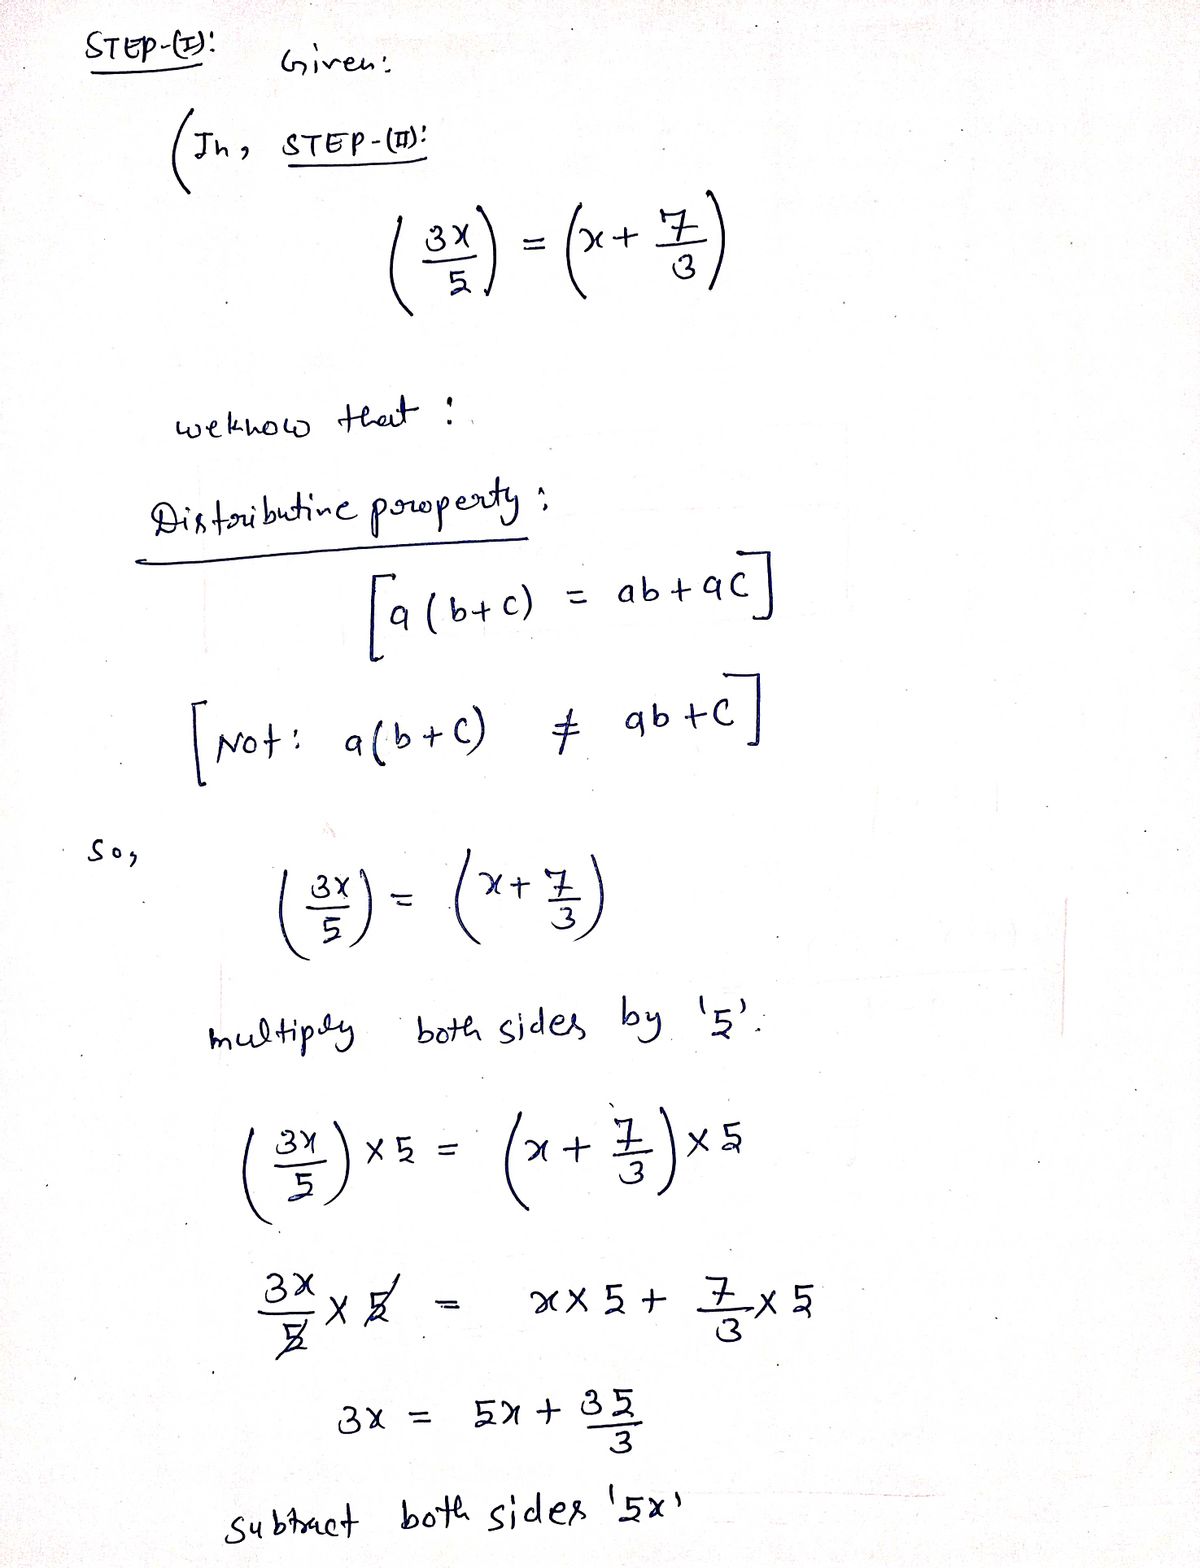 STEP-(I): Given:
(In, STEP-(II):
(3x/5) = (x + 7/3)
we know that :
Distributive property :
[a(b+c) = ab+ac]
[Not: a(b+c) ≠ ab+c]
So,
(3x/5) = (x + 7/3)
multiply both sides by '5'.
(3x/5) × 5 = (x + 7/3) × 5
3x/5 × 5 = x × 5 + 7/3 × 5
3x = 5x + 35/3
subtract both sides '5x'